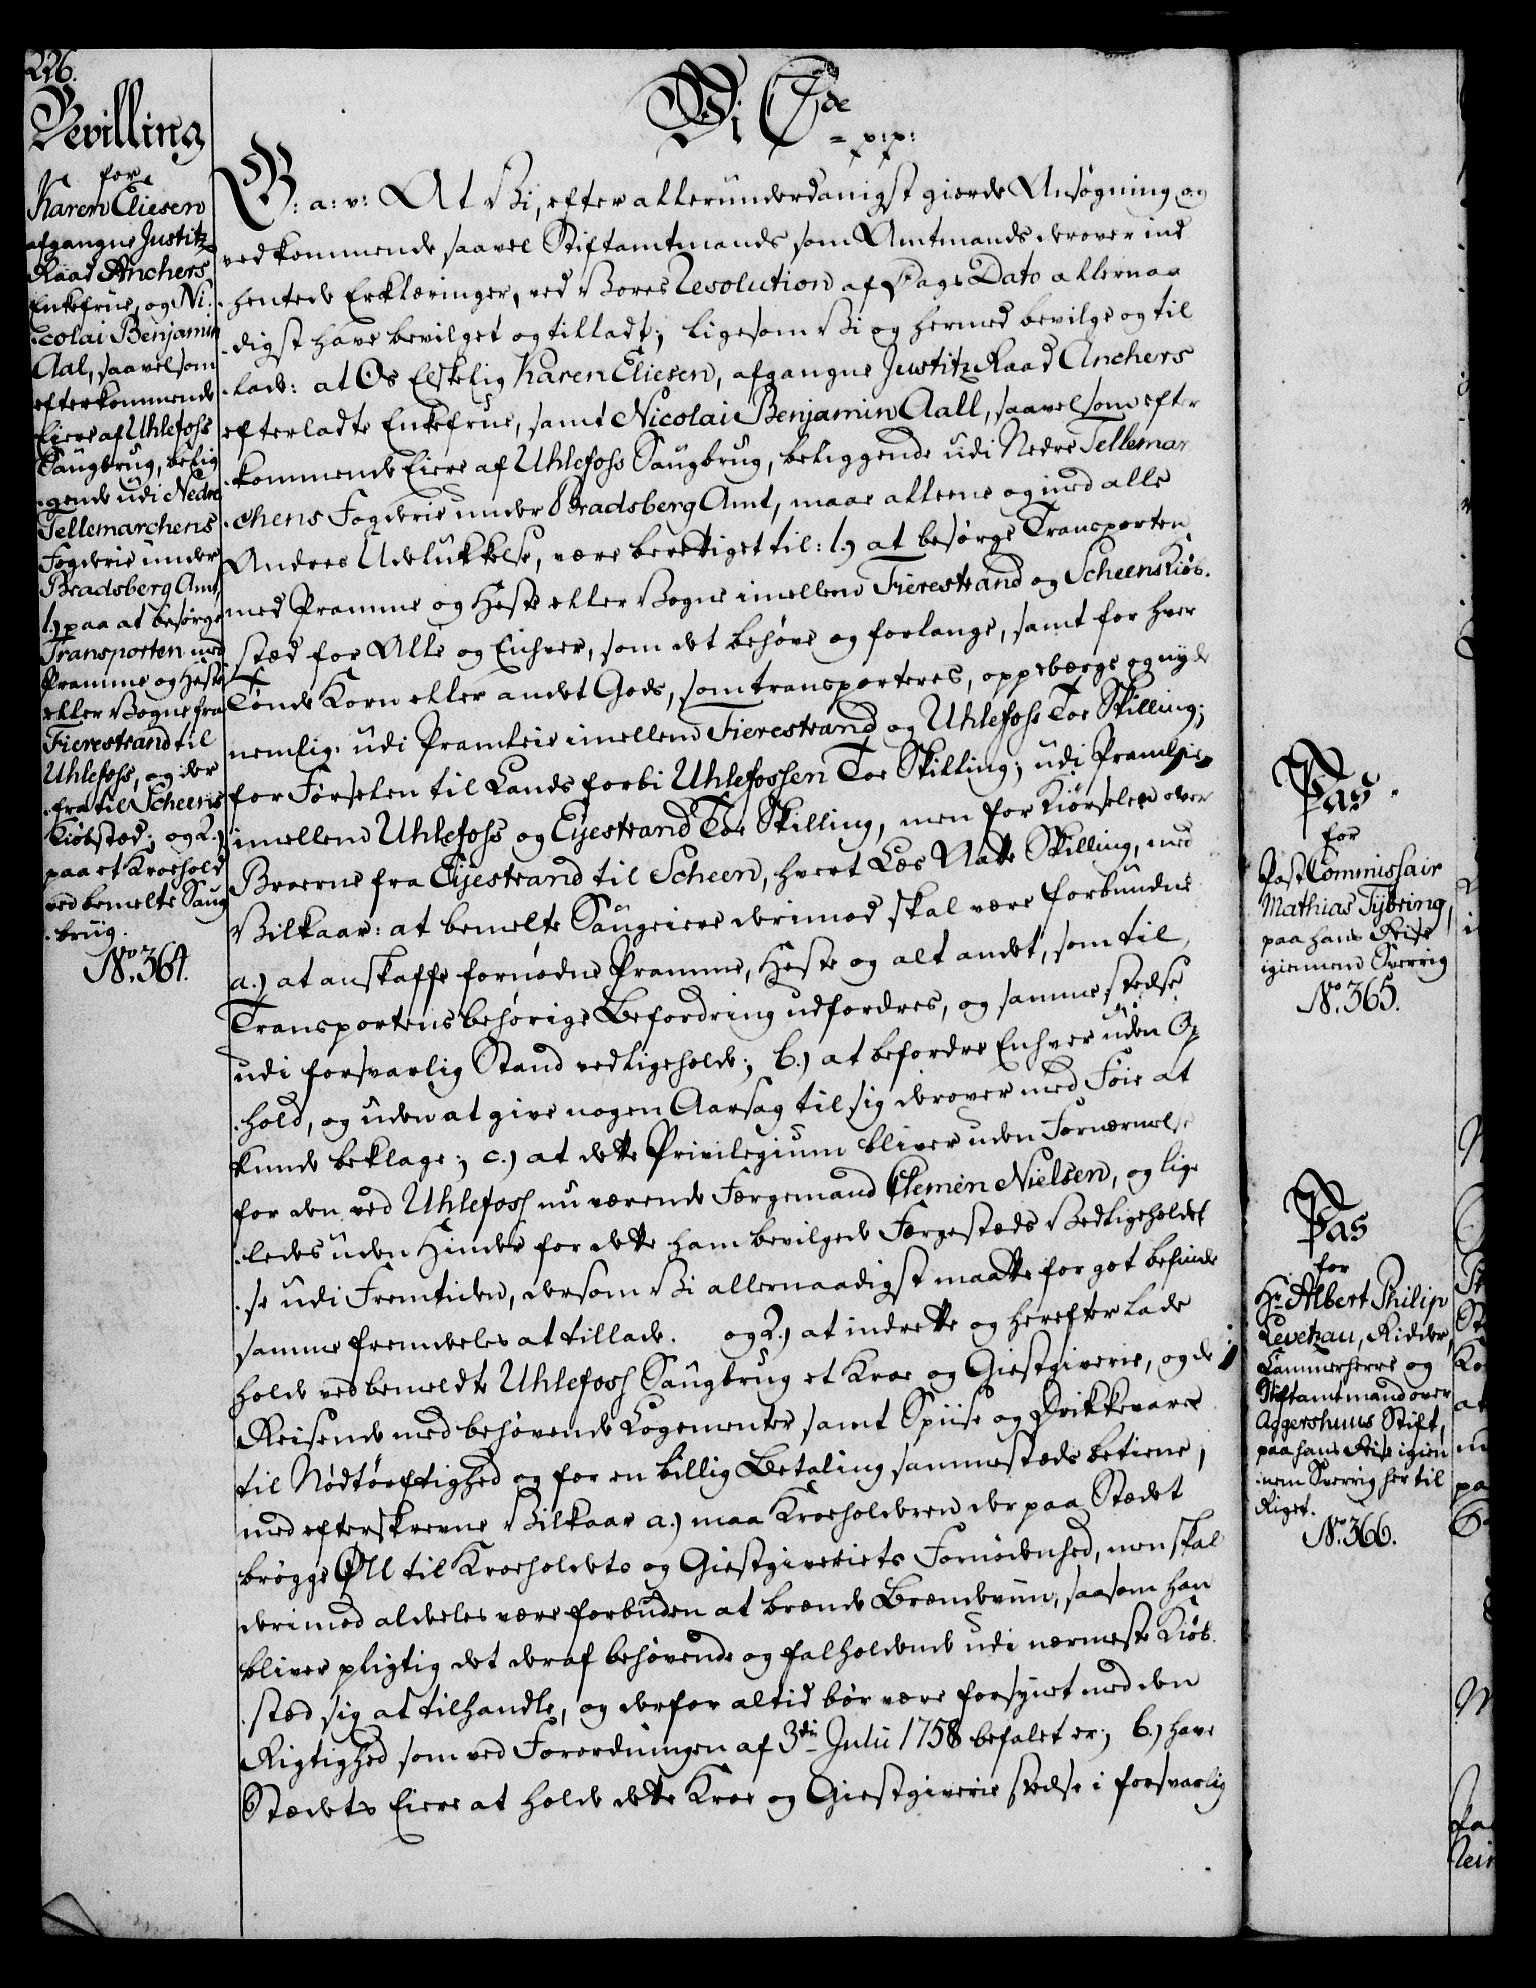 226.
Bevilling
for
Karen Eliesen
afgangne Justitz
Raad Anchers
Enkefrue, og Ni-
colai Benjamin
Aal, saavelsom
efterkommende
Eiere af Uhlefoss
Saugbrug, belig
gende udi Nedre
Tellemarchens
Fogderie under
Bradsberg Amt,
1.) paa at besørge
Transporten med
Pramme og Heste
eller Vogne fra
Fierestrand til
Uhlefoss, og der
fra til Scheens
Kiøbstæd; og 2.)
paa et Kroehold
ved bemelte Saug
brug.
No. 364.
Vi C 7de
= p:p:
G: a: v: At Vi, efter allerunderdanigst giorde Ansøgning og
vedkommende saavel Stiftamtmands som Amtmands derover ind
hentede Erklæringer, ved Vores Resolution af Dags Dato allernaa
digst have bevilget og tilladt; ligesom Vi og hermed bevilge og til
lade: at Os Elskelig Karen Eliesen, afgangne Justitz Raad Anchers
efterladte Enkefrue, samt Nicolai Benjamin Aall, saavelsom efter
kommende Eiere af Uhlefoss Saugbrug, beliggende udi Nedre Tellemar
chens Fogderie under Bradsberg Amt, maae alleene og med alle
Andres Udelukkelse, være berettiget til: 1.) at besørge Transporten
med Pramme og Heste eller Vogne imellem Fierestrand og Scheens Kiøb-
stæd for Alle og Enhver, som det behøve og forlange, samt for hver
Tønde Korn eller andet Gods, som transporteres, oppebærge og nyde
nemlig: udi Pramleie imellem Fierestrand og Uhlefoss Toe Skilling;
for Førselen til Lands forbi Uhlefossen Toe Skilling; udi Pramleie
imellem Uhlefoss og Eyestrand Toe Skilling, men for Kiørselen over
Broerne fra Eyestrand til Scheen, hvert Læs Aatte Skilling, med
Vilkaar: at bemelte Saugeiere derimod skal være forbundne
a.) at anskaffe fornødne Pramme, Heste og alt andet, som til
Transportens behørige Befordring udfordres, og samme stedse
udi forsvarlig Stand vedligeholde; b.) at befordre Enhver uden Op
hold, og uden at give nogen Aarsag til sig derover med Føie at
kunde beklage; c.) at dette Privilegium bliver uden Fornærmelse
for den ved Uhlefoss nu værende Færgemand Clemen Nielsen, og lige
ledes uden Hinder for dette ham bevilgede Færgestæds Vedligeholdel
se udi Fremtiden, dersom Vi allernaadigst maatte for got befinde
samme fremdeles at tillade. og 2.) at indrette og herefter lade
holde ved bemeldte Uhlefoss Saugbrug et Kroe og Giestgiverie, og de
Reisende med behøvende Logementer samt Spiise og Drikkevarer
til Nødtørftighed og for en billig Betaling sammestæds betiene,
med efterskrevne Vilkaar a.) maa Kroeholderen der paa Stædet
brøgge Øll til Kroeholdets og Giestgiveriets Fornødenhed, men skal
derimod aldeles være forbuden at brænde Brændeviin, saasom han
bliver pligtig det deraf behøvende og falholdende udi nærmeste Kiøb-
stæd sig at tilhandle, og derfor altid bør være forsynet med den
Rigtighed som ved Forordningen af 3die Julii 1758 befalet er; b.) have
Stædets Eiere at holde dette Kroe og Giestgiverie stedse i forsvarlig
Pas
for
Post Commissair
Mathias Tybring,
paa hans Reise
igiennem Sverrig
No. 365.
Pas
for
Hr. Albert Philip
Levetzau, Ridder,
Cammerherre og
Stiftamtmand over
Aggershuus Stift,
paa hans Reise igien
nem Sverrig her til
Riget.
No. 366.